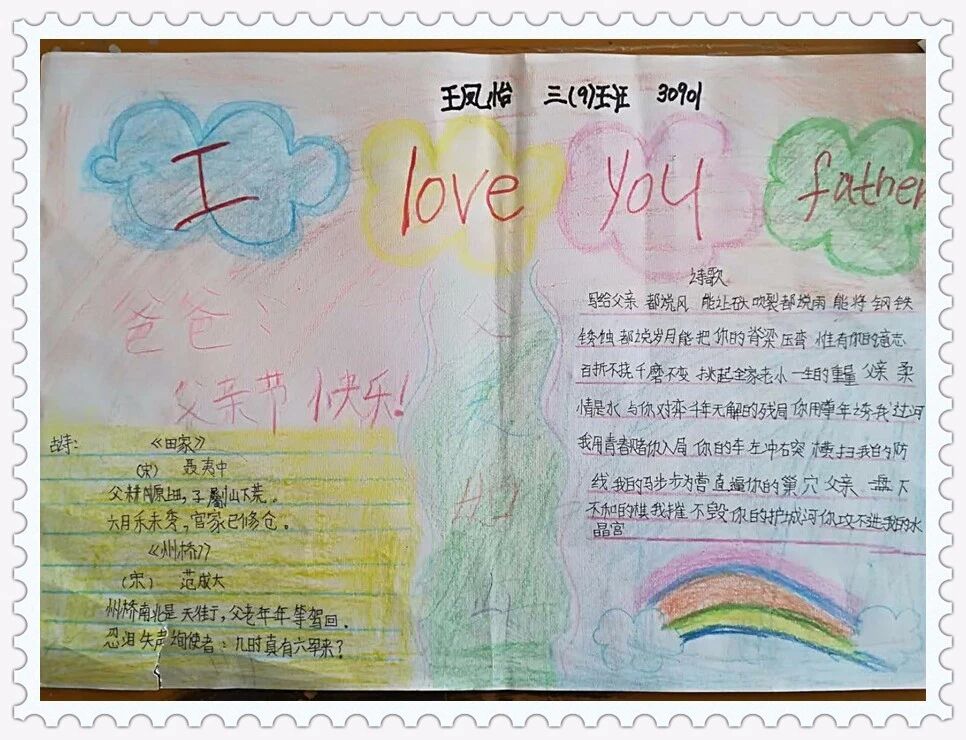 王凤怡 三(9)班 30901
I love you father
爸爸:
父亲节快乐!
古诗:
《田家》
(宋) 聂夷中
父耕原上田,子劚山下荒。
六月禾未秀,官家已修仓。
《州桥》
(宋) 范成大
州桥南北是天街,父老年年等驾回。
忍泪失声询使者:几时真有六军来?
父
诗歌
写给父亲 都说风 能让砍吹裂都说雨 能将钢铁
锈蚀都说岁月能把你的脊梁压弯 惟有你的意志
百折不挠千磨不变 挑起全家老小一生的重量 父亲 柔
情是水 与你对弈斗年无解的残局你用童年诱我过河
我用青春赌你入局 你的车左冲右突 横扫我的防
线 我的马步步为营直逼你的巢穴 父亲 一盘下
不和的棋我摧不毁你的护城河你攻不进我的水
晶宫